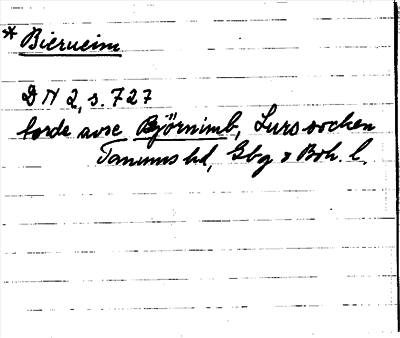 * Bierueim
DN 2, s. 727
torde avse Björnimb, Lurs socken
Tanums hd, Gbg o Boh. l.